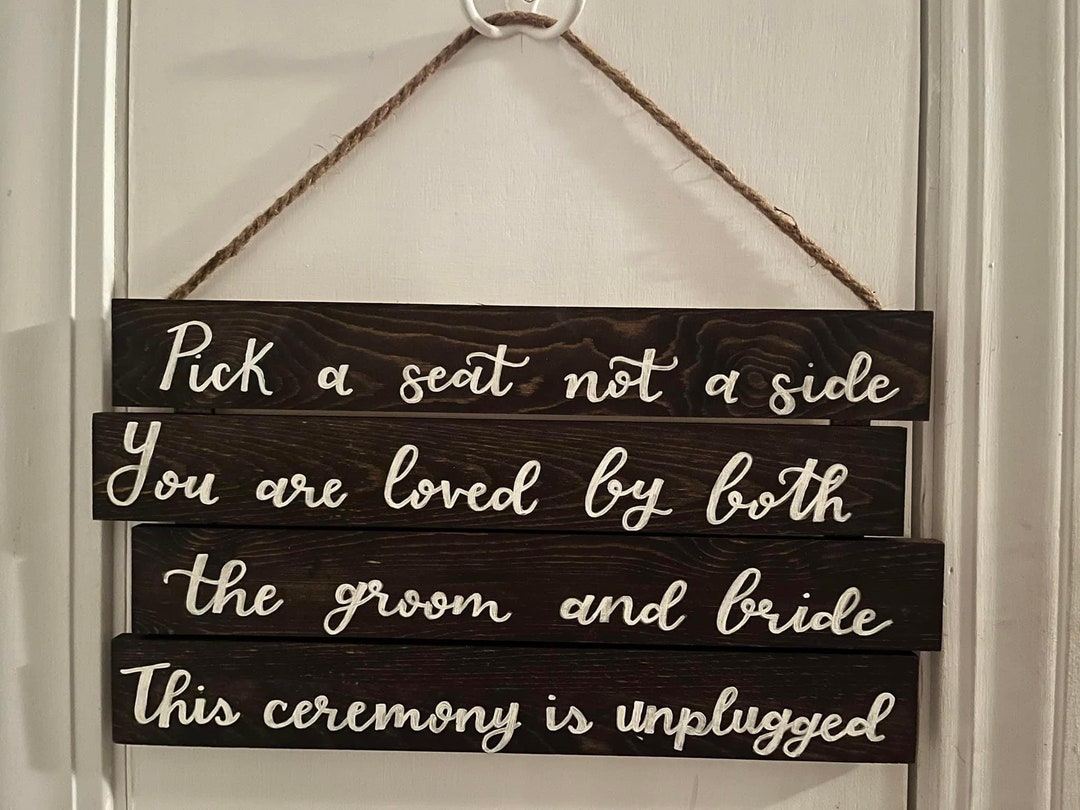 Pick a seat not a side
You are loved by both
the groom and bride
This ceremony is unplugged